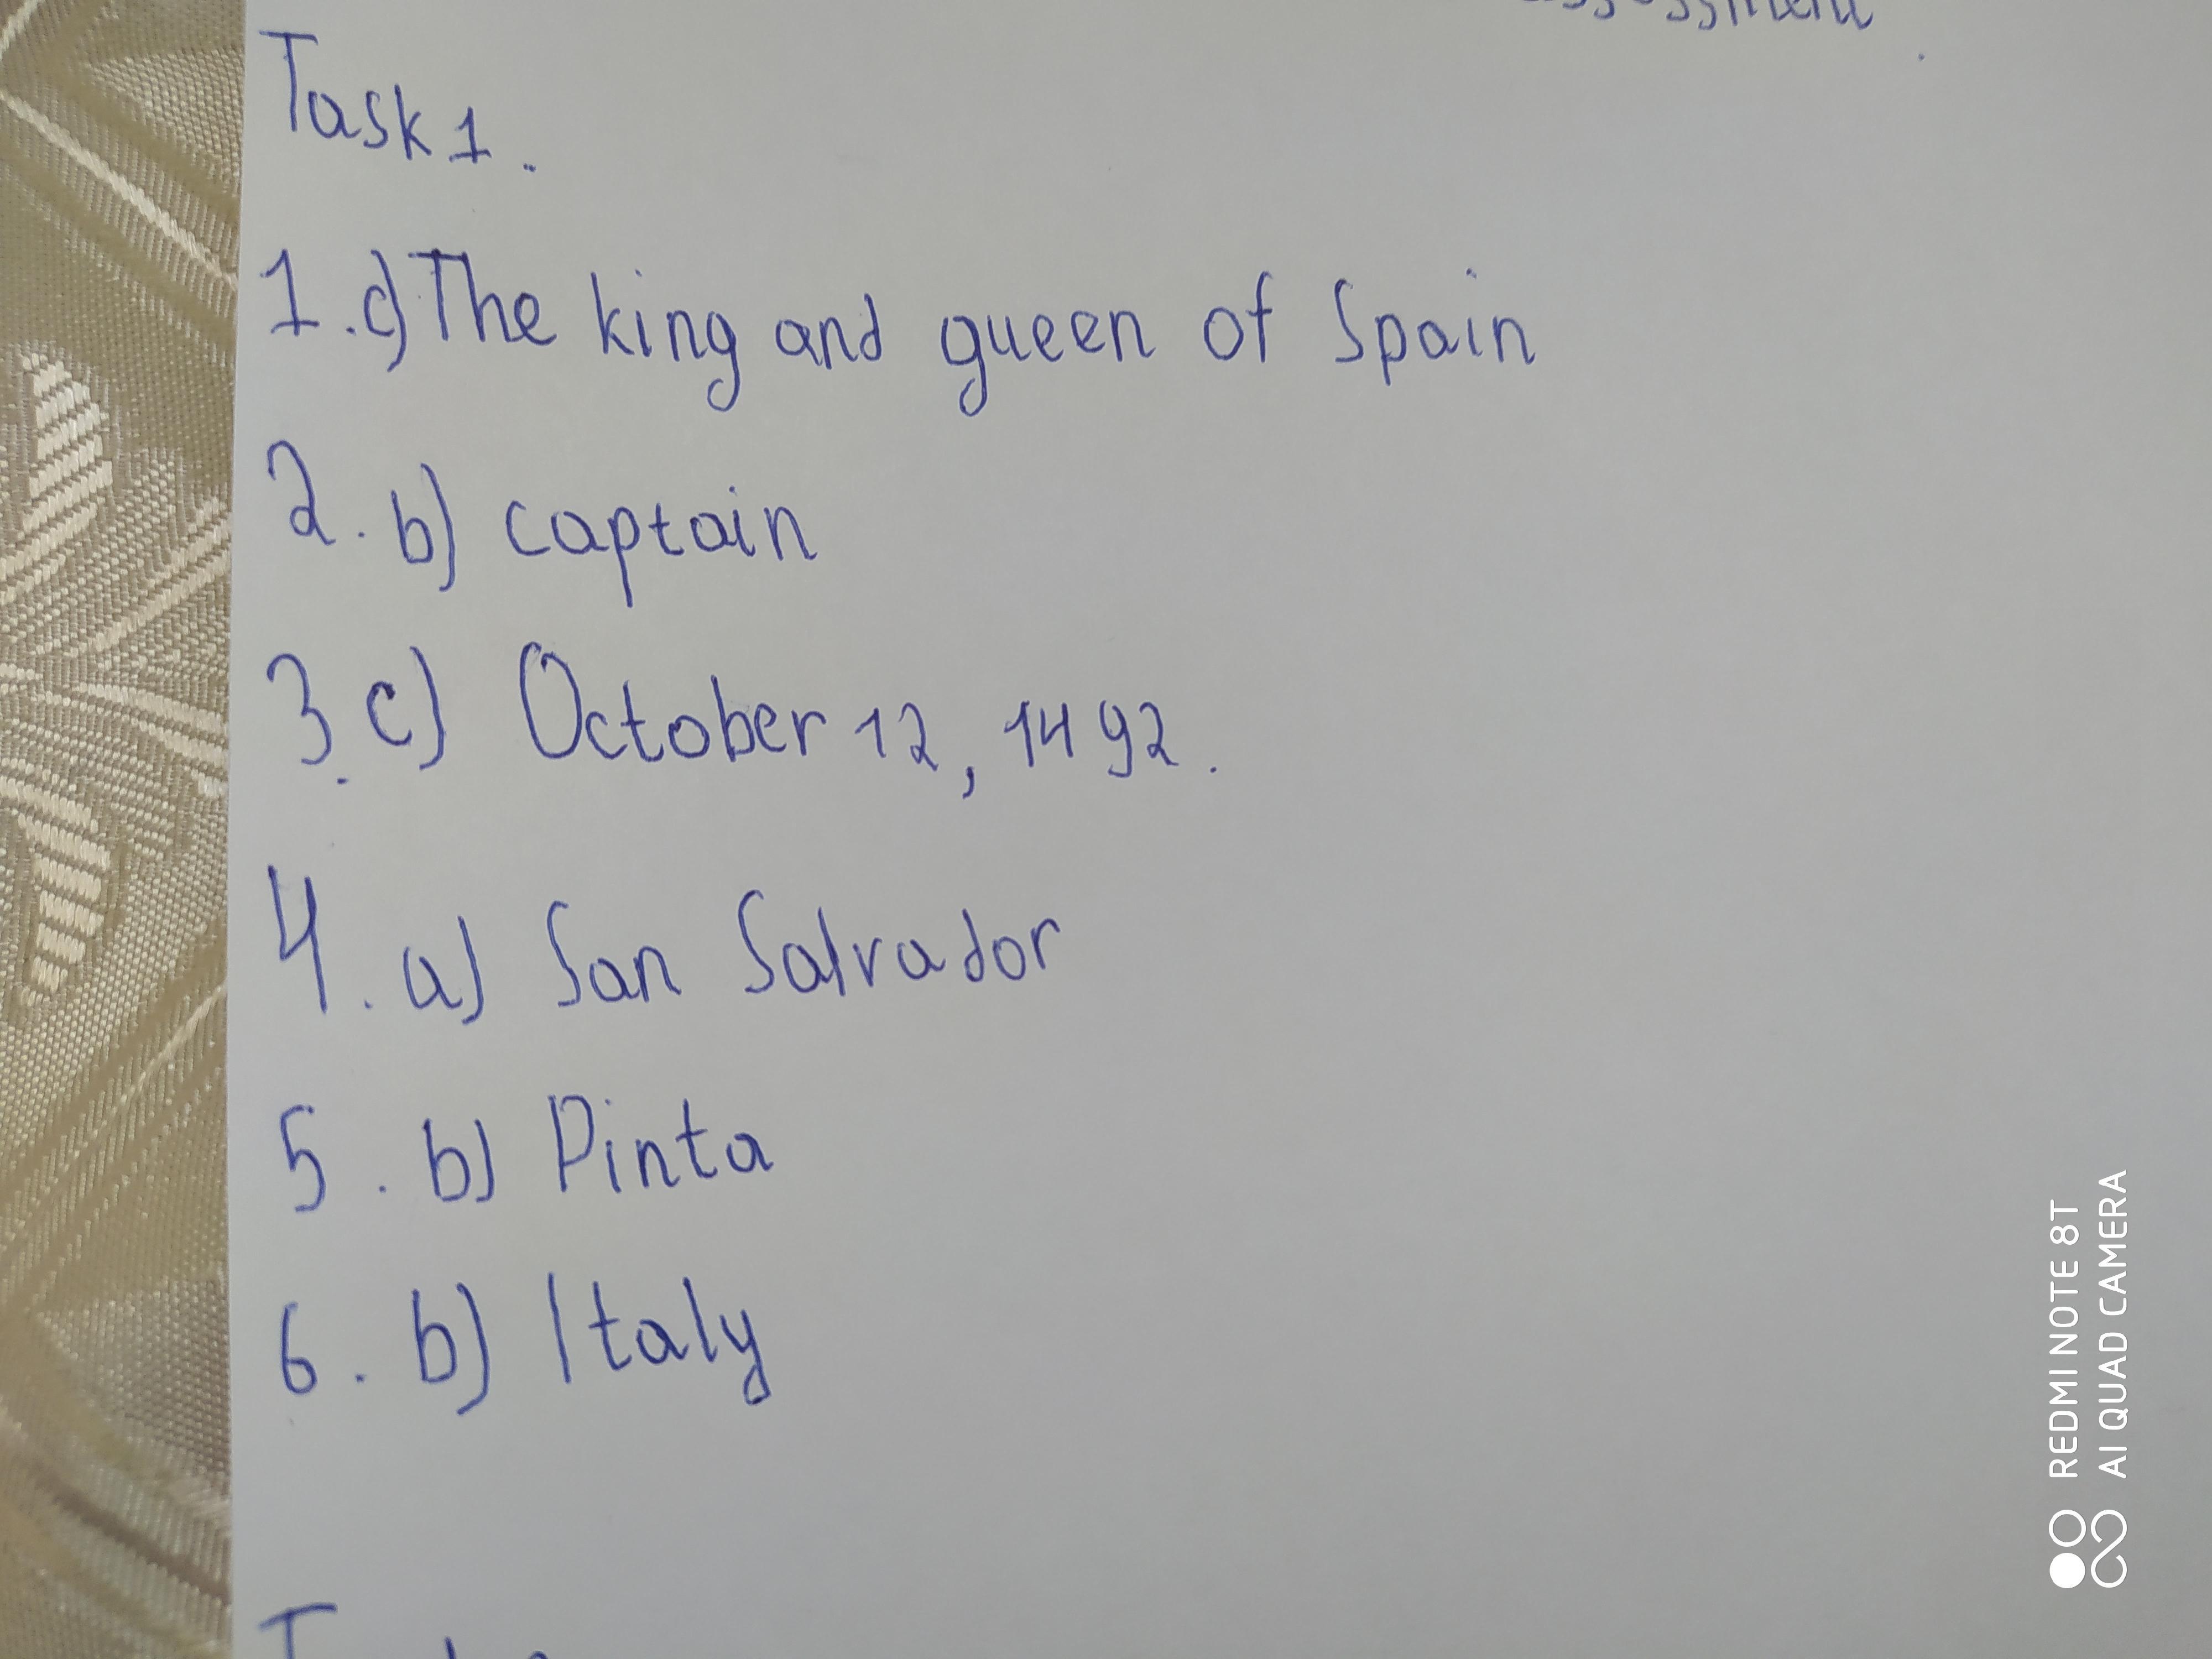 Task 1.
1. c) The king and queen of Spain
2. b) captain
3. c) October 12, 1492.
4. a) San Salvador
5. b) Pinta
6. b) Italy
REDMI NOTE 8T
AI QUAD CAMERA